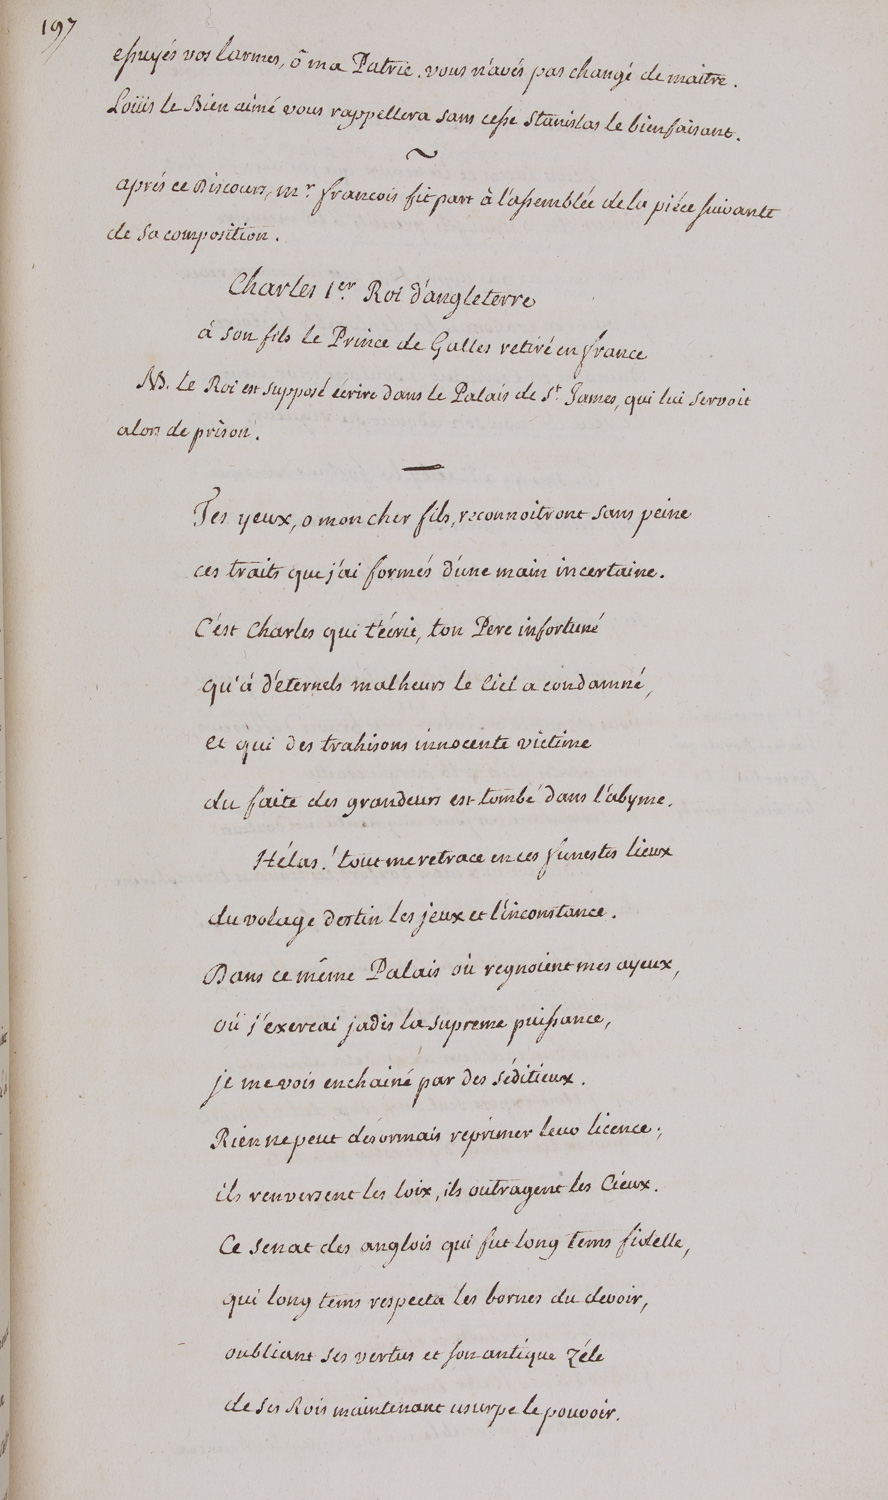 197
essuyés vos larmes, ô ma Patrie. vous n'avés pas changé de maitre.
Loüis le Bien aimé vous rappellera sans cesse Stanislas le bienfaisant.
~
aprés ce Discours, mr. francois fit part à l'assemblée de la piéce suivante
de sa composition.
Charles 1er. Roi d'angleterre
à son fils le Prince de Galles retiré en france
NB. Le Roi est supposé écrire dans le Palais de St. James, qui lui servoit
alors de prison.
Tes yeux, o mon cher fils, reconnoitront sans peine
ces traits que j'ai formés d'une main incertaine.
C'est Charles qui t'écrit, ton Pere infortuné
qu'à d'éternels malheurs le Ciel a condamné,
et qui des trahisons innocente victime
du faite des grandeurs est tombé dans l'abyme.
Hélas! tout me retrace en ces funestes lieux
du volage destin les jeux et l'inconstance.
Dans ce même Palais où regnoient mes ayeux,
où j'exercai jadis la supreme puissance,
je me vois enchainé par des séditieux.
Rien ne peut désormais reprimer leur licence;
ils renversent les loix, ils outragent les Cieux.
Ce senat des anglois qui fut long tems fidelle,
qui long tems respecta les bornes du devoir,
oubliant ses vertus et son antique zéle
de ses Rois maintenant usurpe le pouvoir.